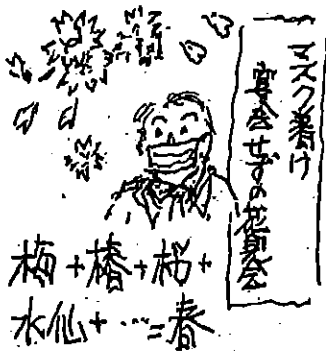 マスク着け
宴会せずの花見会
梅+椿+桜+
水仙+…=春